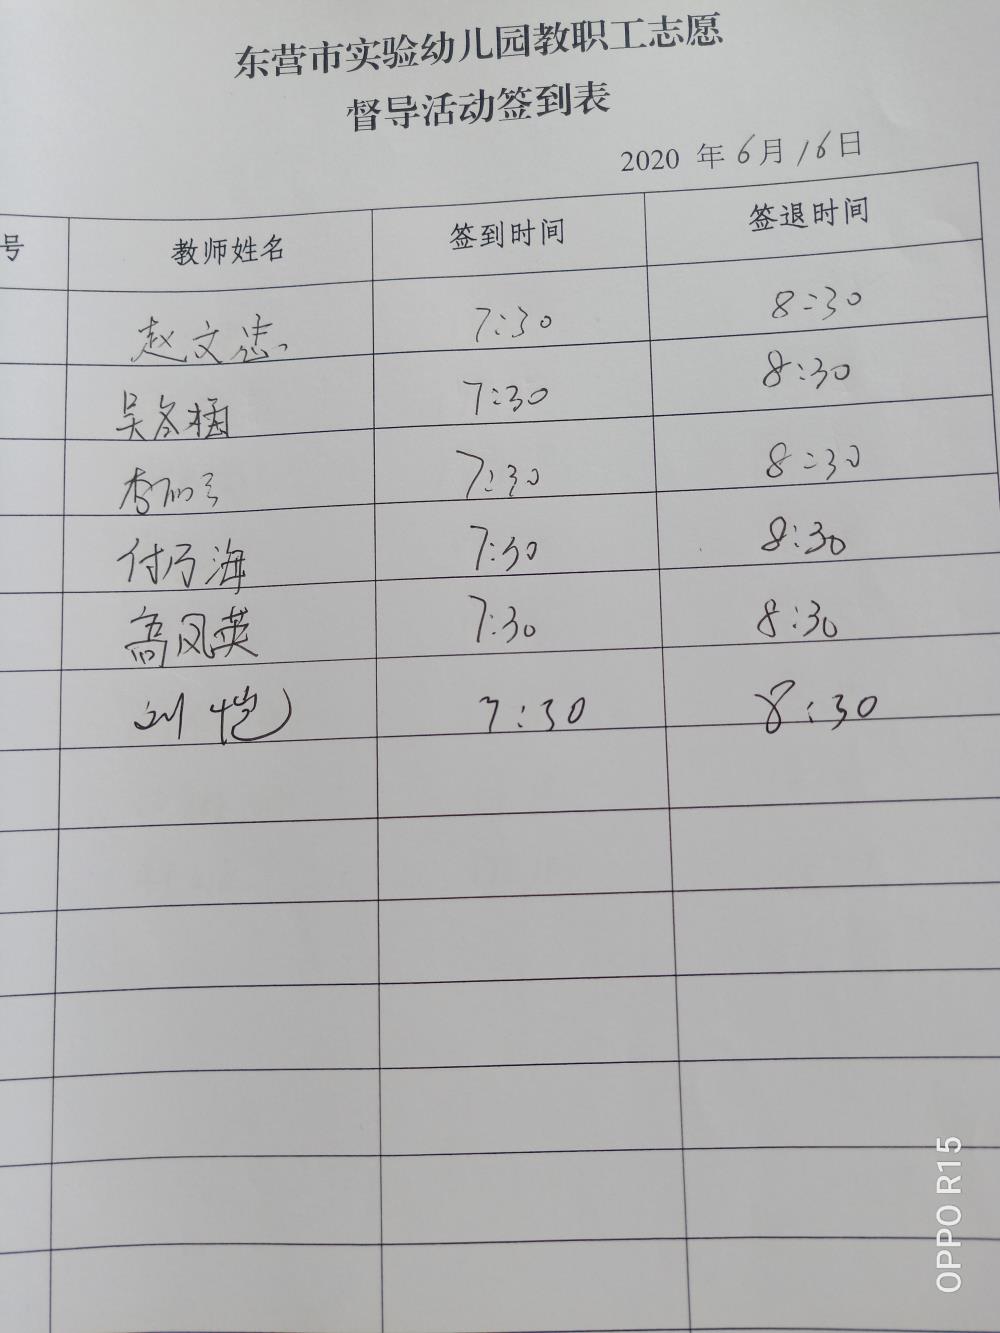 东营市实验幼儿园教职工志愿
督导活动签到表
2020 年 6月 16日
号 教师姓名 签到时间 签退时间
赵文忠 7:30 8:30
吴冬梅 7:30 8:30
李 7:30 8:30
付乃海 7:30 8:30
高凤英 7:30 8:30
刘恺 7:30 8:30
OPPO R15